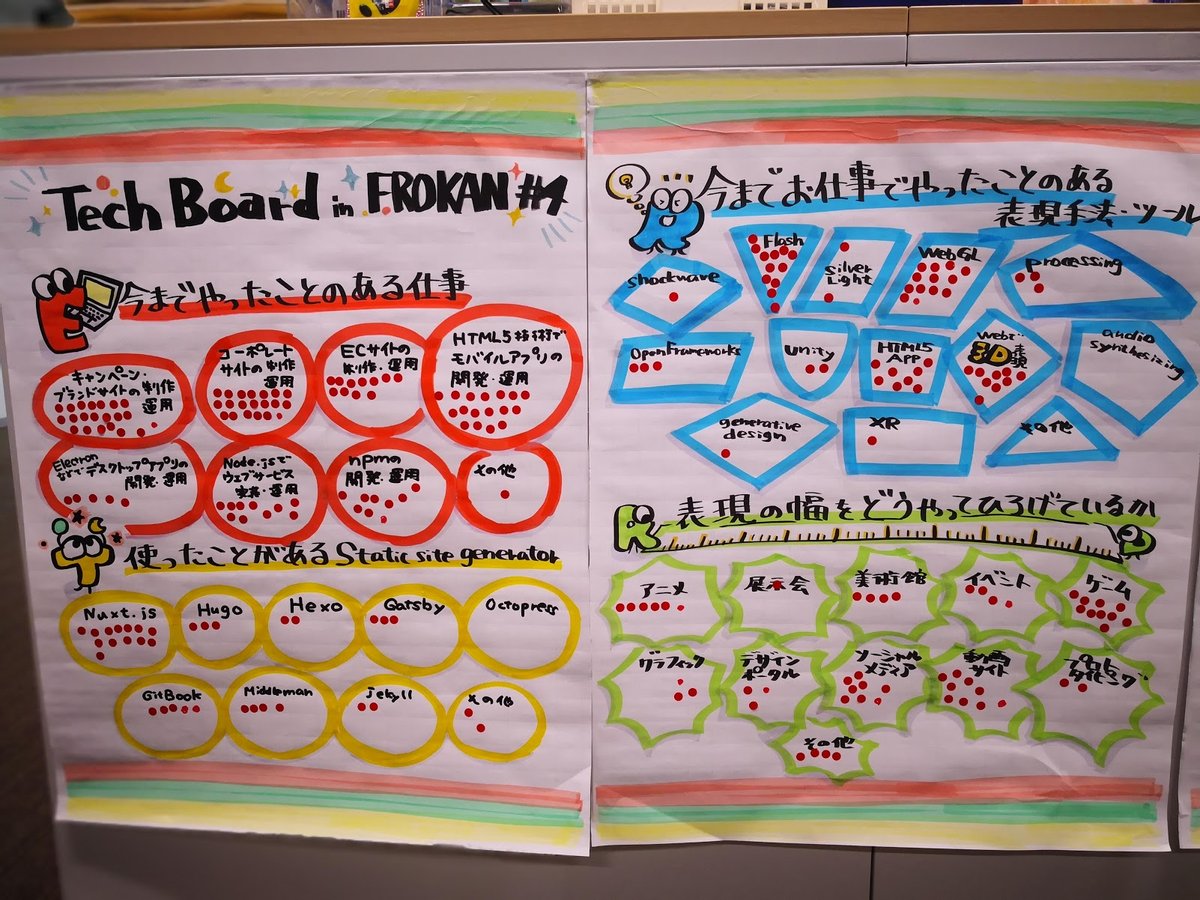 Tech Board in FROKAN #4
今までやったことのある仕事
キャンペーン・
ブランドサイトの制作
運用
コーポレート
サイトの制作
運用
ECサイトの
制作・運用
HTML5技術で
モバイルアプリの
開発・運用
Electron
などでデスクトップアプリの
開発・運用
Node.jsで
ウェブサービス
実装・運用
npmの
開発・運用
その他
使ったことがあるStatic site generator
Nuxt.js
Hugo
Hexo
Gatsby
Octopress
GitBook
Middleman
Jekyll
その他
今までお仕事でやったことのある
表現手法・ツール
shockwave
Flash
silver
Light
WebGL
processing
OpenFrameworks
Unity
HTML5
App
Webで
3D
audio
synthesizing
generative
design
XR
その他
表現の幅をどうやってひろげているか
アニメ
展示会
美術館
イベント
ゲーム
グラフィック
デザイン
ポータル
ソーシャル
メディア
動画
サイト
プロト
タイピング
その他